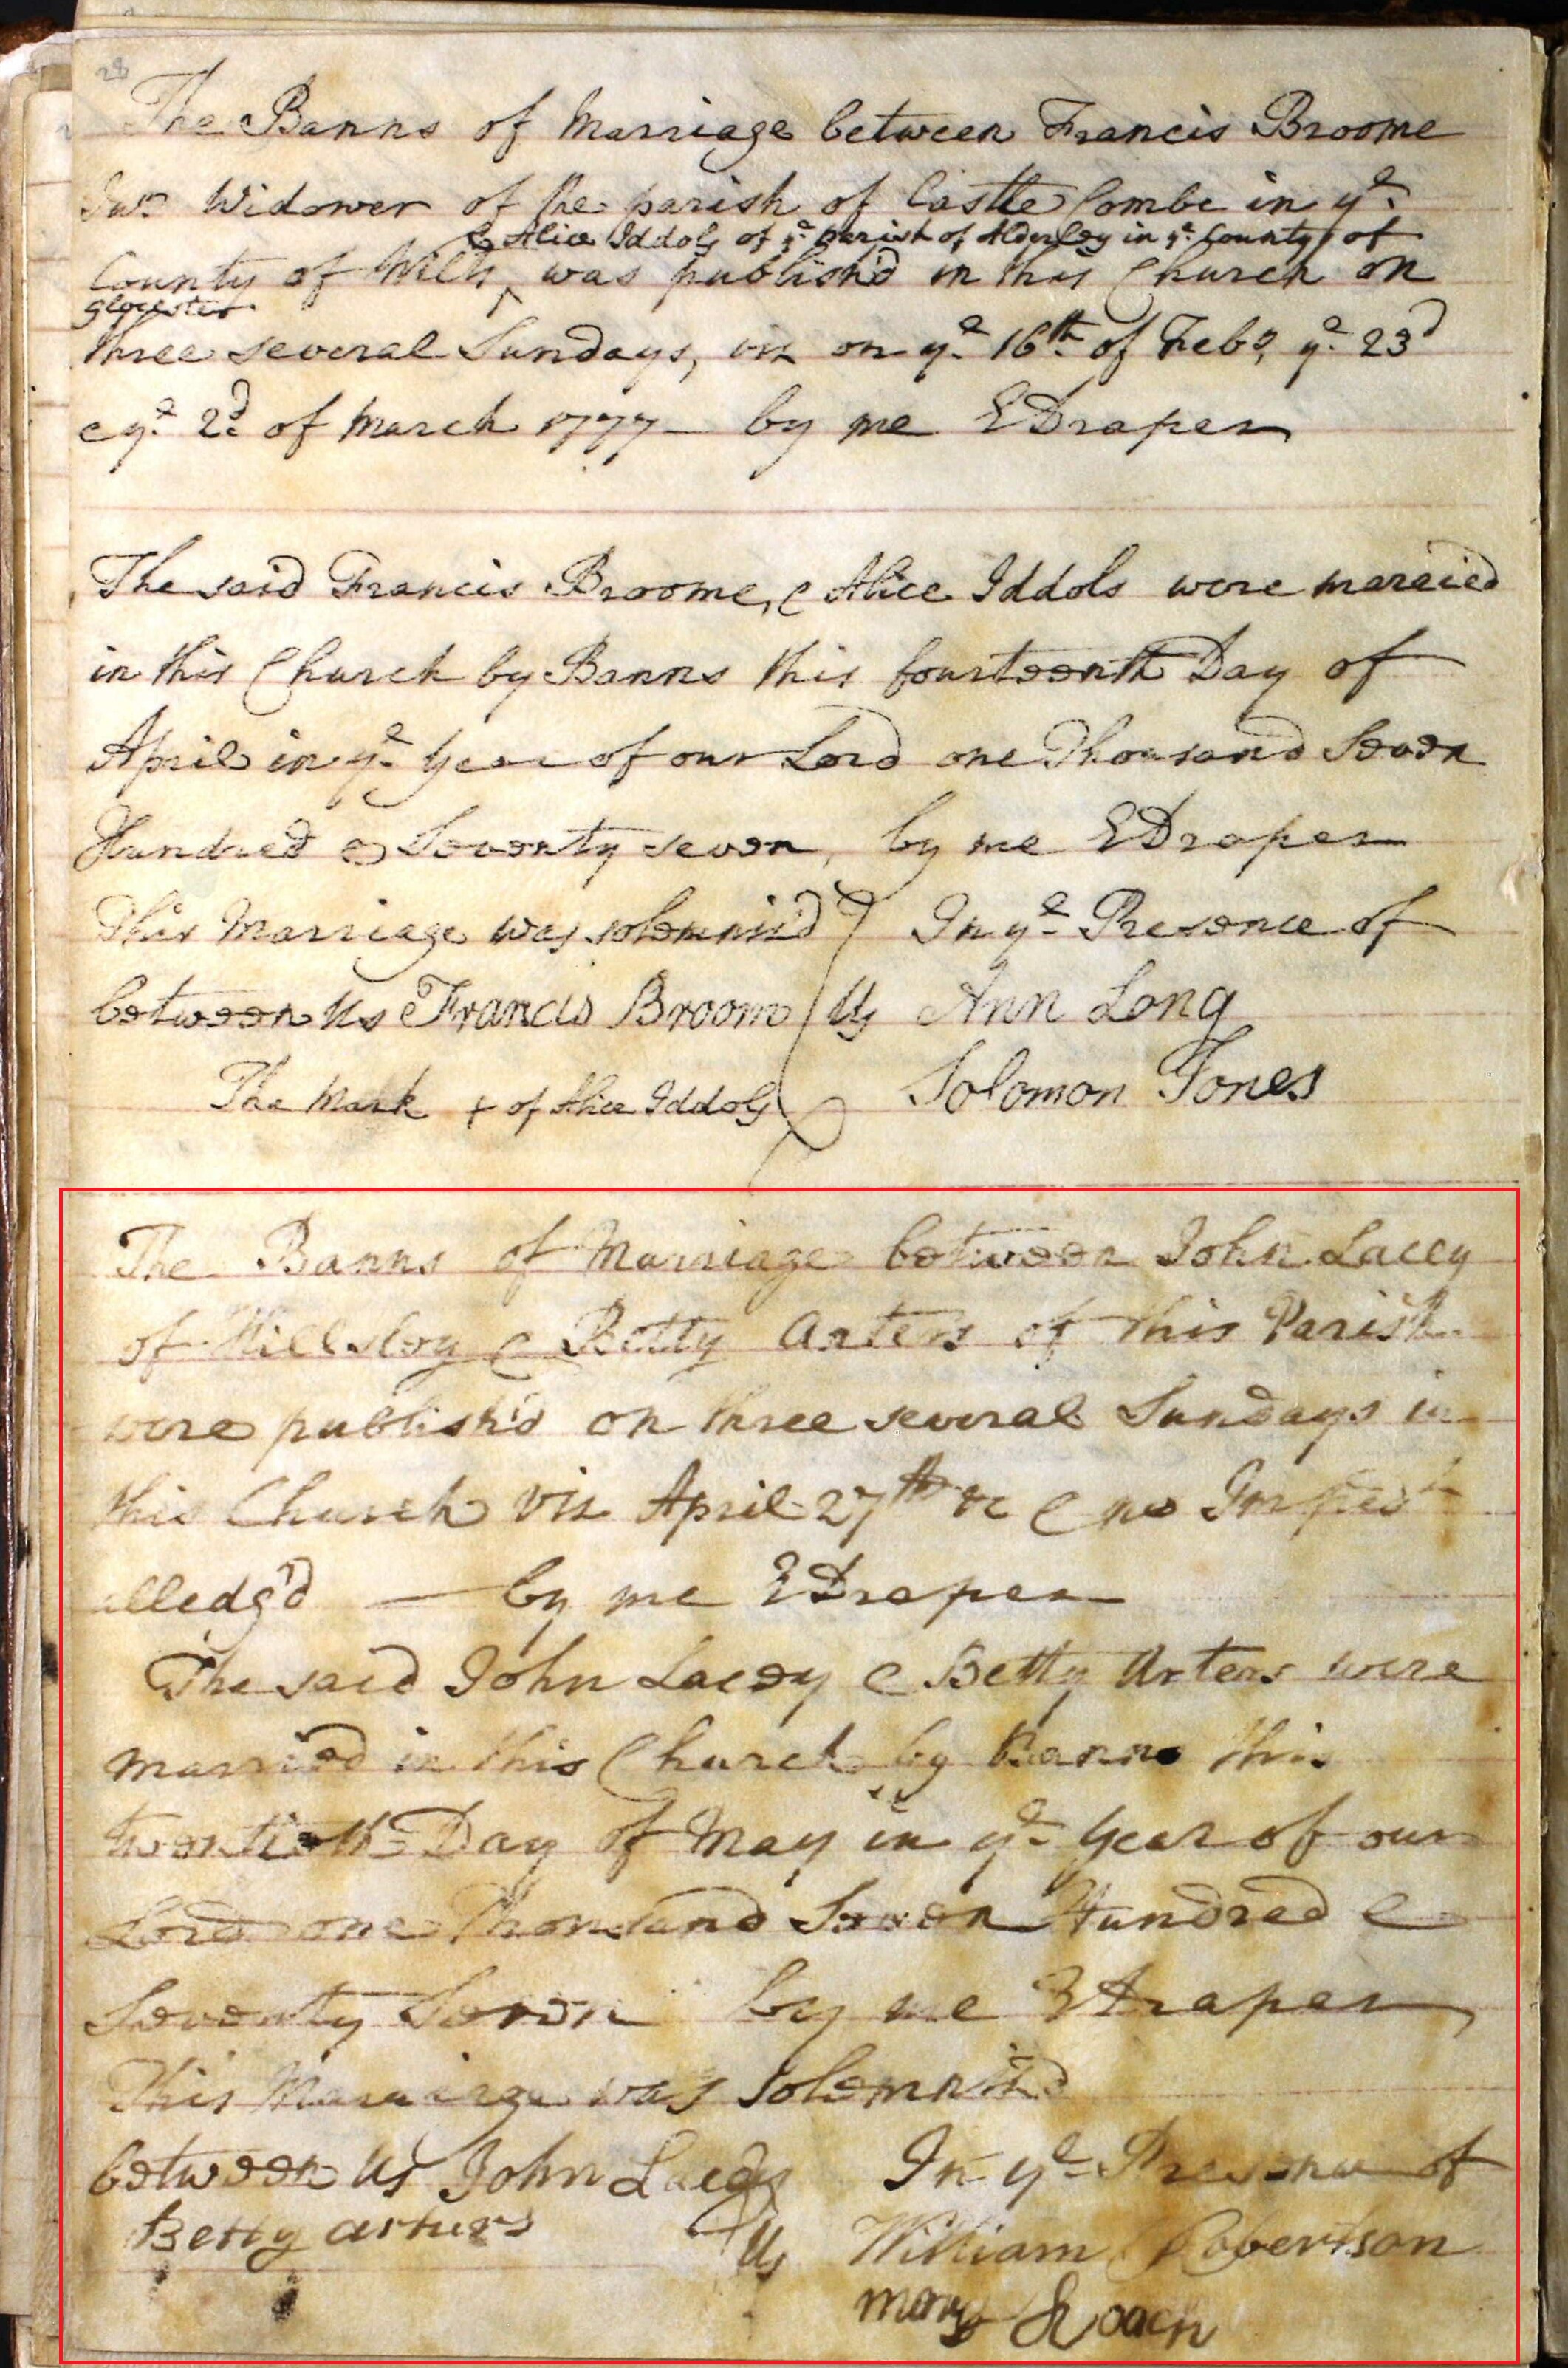 28
The Banns of Marriage between Francis Broome
Junr Widower of the parish of Castle Combe in ye
& Alice Iddols of ye parish of Alderley in ye County of
County of Wilts ^ was publish'd in this Church on
Glocester
three several Sundays, viz on ye 16th of Feby, ye 23d
& ye 2d of March 1777 by me EDraper
The said Francis Broome, & Alice Iddols were married
in this Church by Banns this fourteenth Day of
April in ye Year of our Lord one Thousand Seven
Hundred & Seventy seven, by me EDraper
This Marriage was solemnis'd } In ye Presence of
between Us Francis Broom Us Ann Long
The Mark + of Alice Iddols Solomon Jones
The Banns of Marriage between John Lacey
of Hillsley & Betty Arters of this Parish
were publish'd on three several Sundays in
this Church viz April 27th &c & no Impedt
alledg'd — by me EDraper
The said John Lacey & Betty Arters were
married in this Church by Banns this
twentieth Day of May in ye Year of our
Lord one Thousand Seven Hundred &
Seventy Seven by me EDraper
This Marriage was Solemniz'd
between Us John Lacey In ye Presence of
Betty arturs Us William Robertson
mary Roach